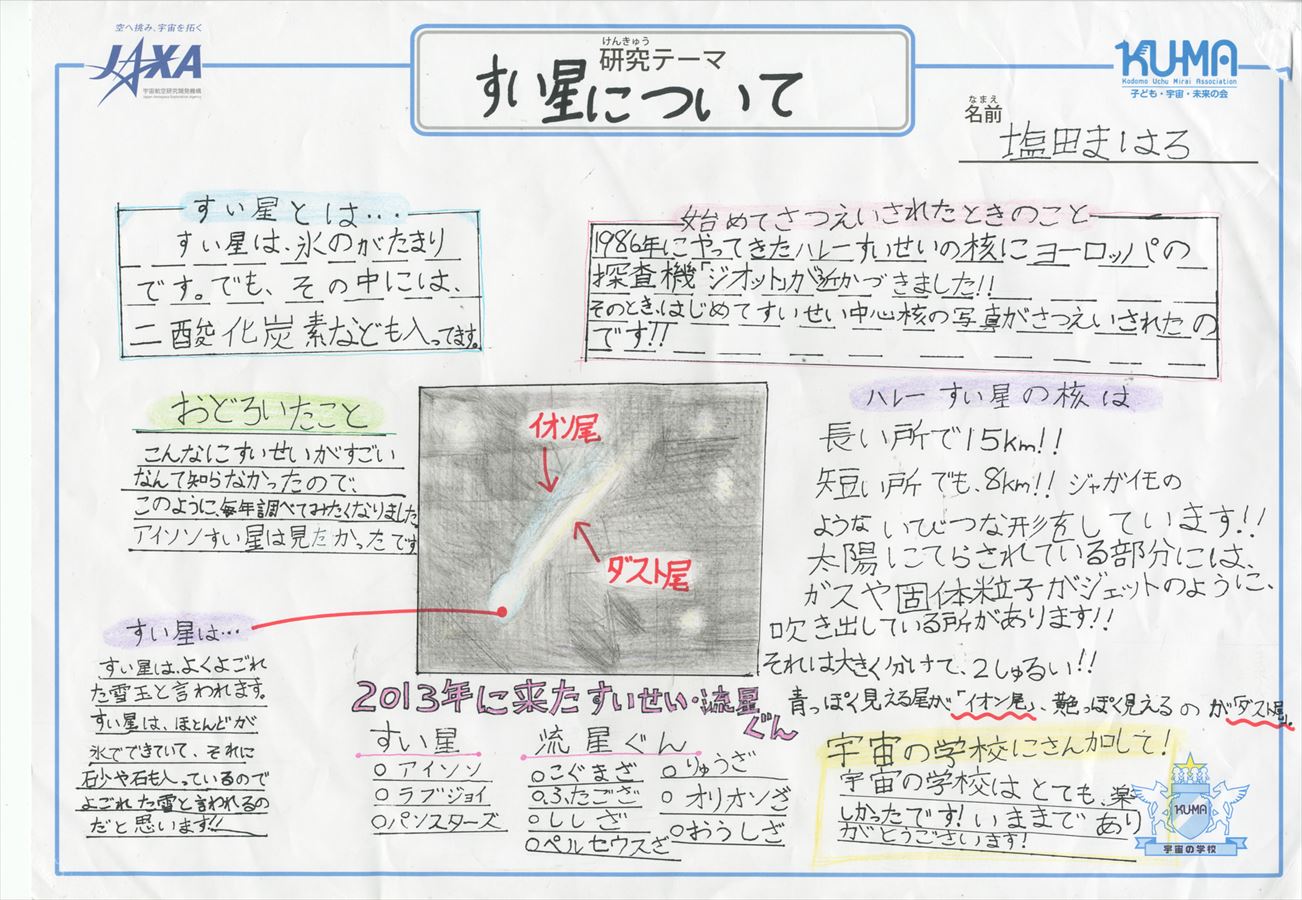 空へ挑み、宇宙を拓く
JAXA
宇宙航空研究開発機構
Japan Aerospace Exploration Agency
けんきゅう
研究テーマ
すい星について
KU-MA
Kodomo Uchu Mirai Association
子ども・宇宙・未来の会
なまえ
名前
塩田ましろ
すい星とは…
すい星は、氷のがたまり
です。でも、その中には、
二酸化炭素なども入ってます。
始めてさつえいされたときのこと
1986年にやってきたハレーすいせいの核にヨーロッパの
探査機「ジオット」が近かづきました!!
そのとき、はじめてすいせい中心核の写真がさつえいされたの
です!!
おどろいたこと
こんなにすいせいがすごい
なんて知らなかったので、
このように、毎年調べてみたくなりました
アイソンすい星は見たかったです
イオン尾
ダスト尾
ハレーすい星の核は
長い所で15km!!
短い所でも、8km!! ジャガイモの
ような いびつな形をしています!!
太陽にてらされている部分には、
ガスや固体粒子がジェットのように、
吹き出している所があります!!
それは大きく分けて、2しゅるい!!
青っぽく見える尾が「イオン尾」、黄っぽく見えるのが「ダスト尾」。
すい星は…
すい星は、よくよごれ
た雪玉と言われます。
すい星は、ほとんどが
氷でできていて、それに
石砂や石も入っているので
よごれた雪と言われるの
だと思います!!
2013年に来たすいせい・流星
ぐん
すい星
○アイソン
○ラブジョイ
○パンスターズ
流星ぐん
○こぐまざ
○ふたござ
○ししざ
○ペルセウスざ
○りゅうざ
○オリオンざ
○おうしざ
宇宙の学校にさん加して!
宇宙の学校はとても、楽
しかったです!いままであり
がとうございます!
KU-MA
宇宙の学校